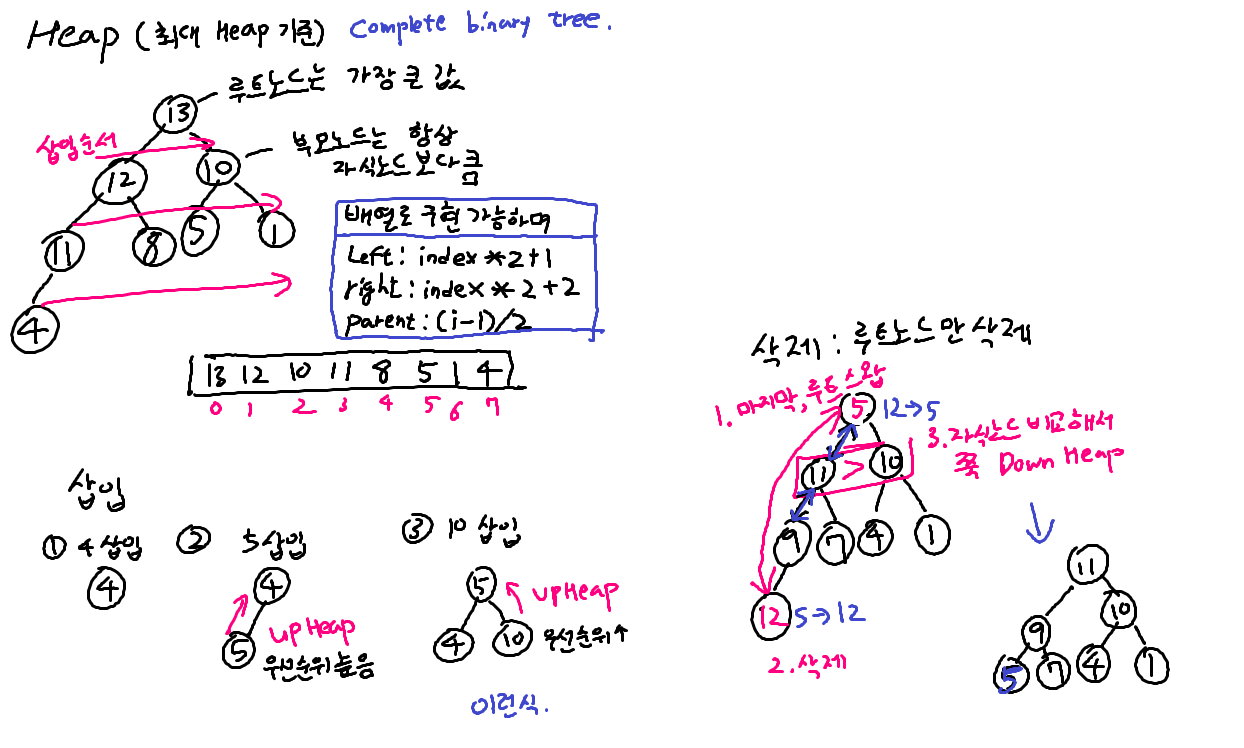 Heap (최대 Heap 기준) Complete binary tree.
13 루트노드는 가장 큰 값
삽입순서
12 10 부모노드는 항상
자식노드보다 큼
11 8 5 1
4
배열로 구현 가능하며
Left: index *2+1
right: index * 2 + 2
parent: (i-1)/2
13 12 10 11 8 5 1 4
0 1 2 3 4 5 6 7
삽입
① 4삽입
4
② 5삽입
4
5
upHeap
우선순위 높음
③ 10 삽입
5
4 10
upHeap
우선순위↑
이런식.
삭제 : 루트노드만 삭제
1. 마지막, 루트 스왑
5 12→5
11 > 10
3. 자식노드 비교해서
쭉 Down Heap
9 7 4 1
12 5→12
2. 삭제
11
9 10
5 7 4 1